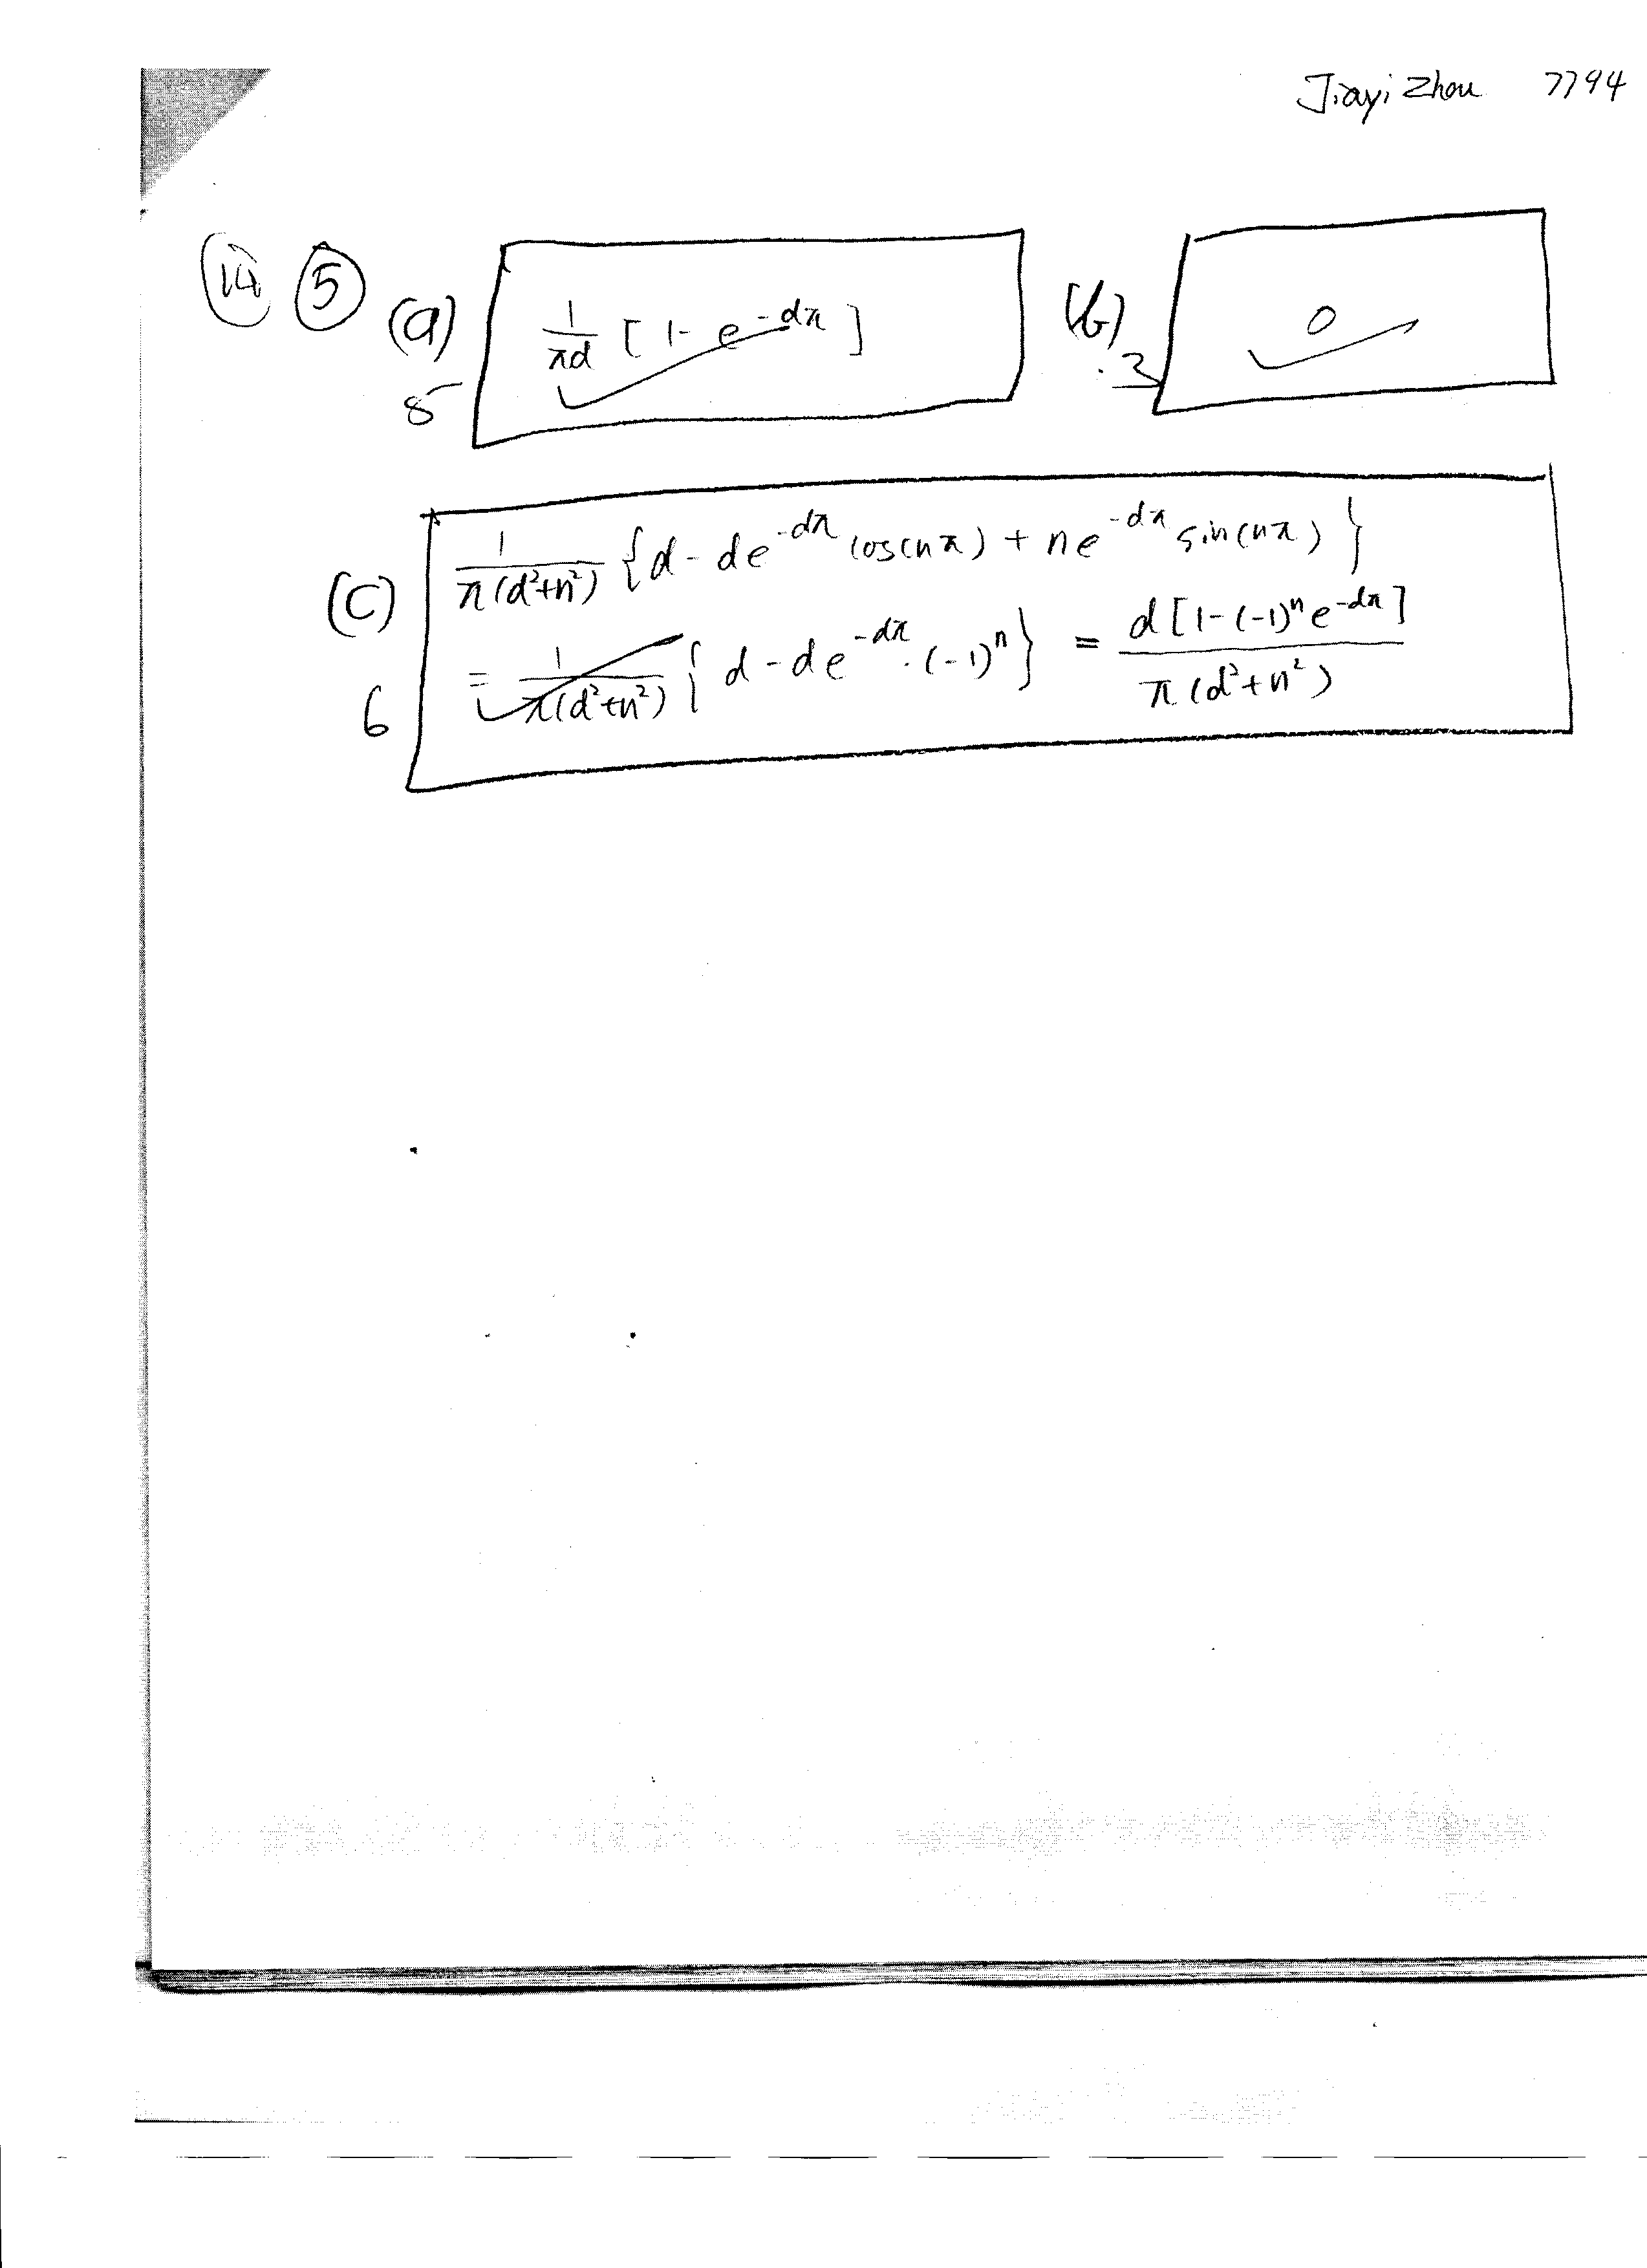 Jiayi Zhou 7794
14 5 (a) 1/πd [1 - e^-dπ] (b) 0
5 3
(c) 1/π(d²+n²) {d - de^-dπ cos(nπ) + ne^-dπ sin(nπ)}
= 1/π(d²+n²) {d - de^-dπ · (-1)^n} = d[1-(-1)^n e^-dπ]/π(d²+n²)
6